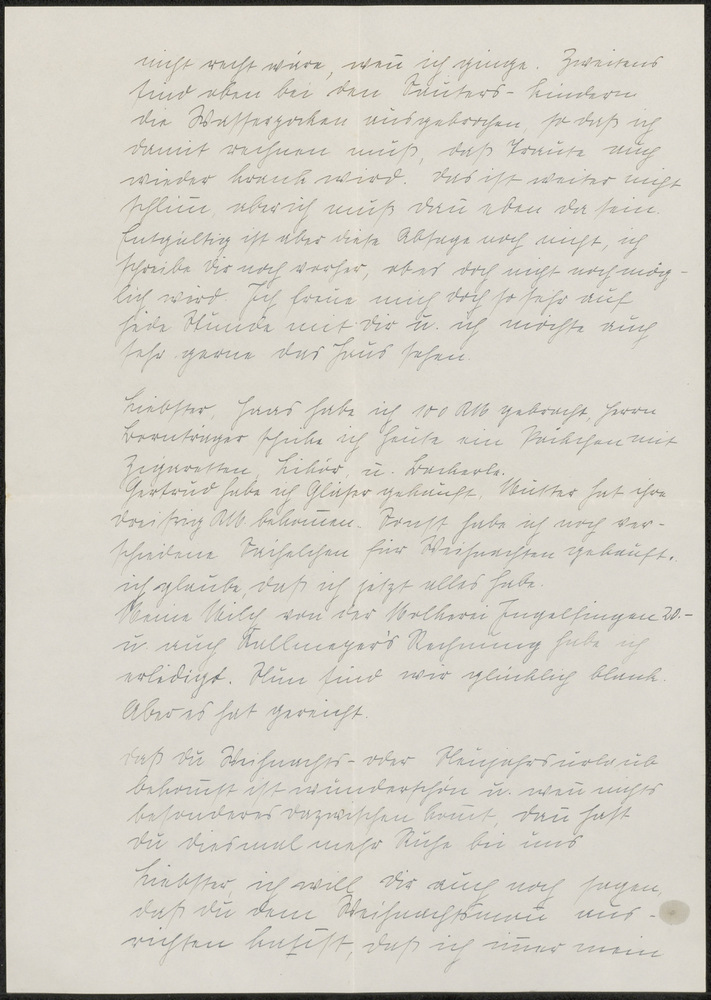 nicht recht wäre, wen̄ ich ginge. Zweitens
sind eben bei den Sauters-Kindern
die Wasserpocken ausgebrochen, so daß ich
damit rechnen muß, daß Traute auch
wieder krank wird. Das ist weiter nicht
schlim̄, aber ich muß dan̄ eben da sein.
Entgültig ist aber diese Absage noch nicht, ich
schreibe Dir noch vorher, ob es doch nicht noch mög-
lich wird. Ich freue mich doch so sehr auf
jede Stunde mit Dir u. ich möchte auch
sehr gerne das Haus sehen.
Liebster, Haas habe ich 100 RM gebracht, Herrn
schicke ich heute ein Päckchen mit
Zigaretten, Likör, u. Backerle.
Gertrud habe ich Gläser gekauft, Mutter hat ihre
dreißig RM bekom̄en. Sonst habe ich noch ver-
schiedene Sächelchen für Weihnachten gekauft.
ich glaube, daß ich jetzt alles habe.
Meine Milch von der Molkerei Ingelfingen 20.-
u. auch Kallmeyer's Rechnung habe ich
erledigt. Nun sind wir glücklich blank.
Aber es hat gereicht.
Daß Du Weihnachts- oder Neujahrsurlaub
bekom̄st ist wunderschön u. wen̄ nichts
besonderes dazwischen kom̄t, dan̄ hast
Du diesmal mehr Ruhe bei uns
Liebster, ich will Dir auch noch sagen,
daß Du dem Weihnachtsman̄ aus-
richten kan̄st, daß ich im̄er mein